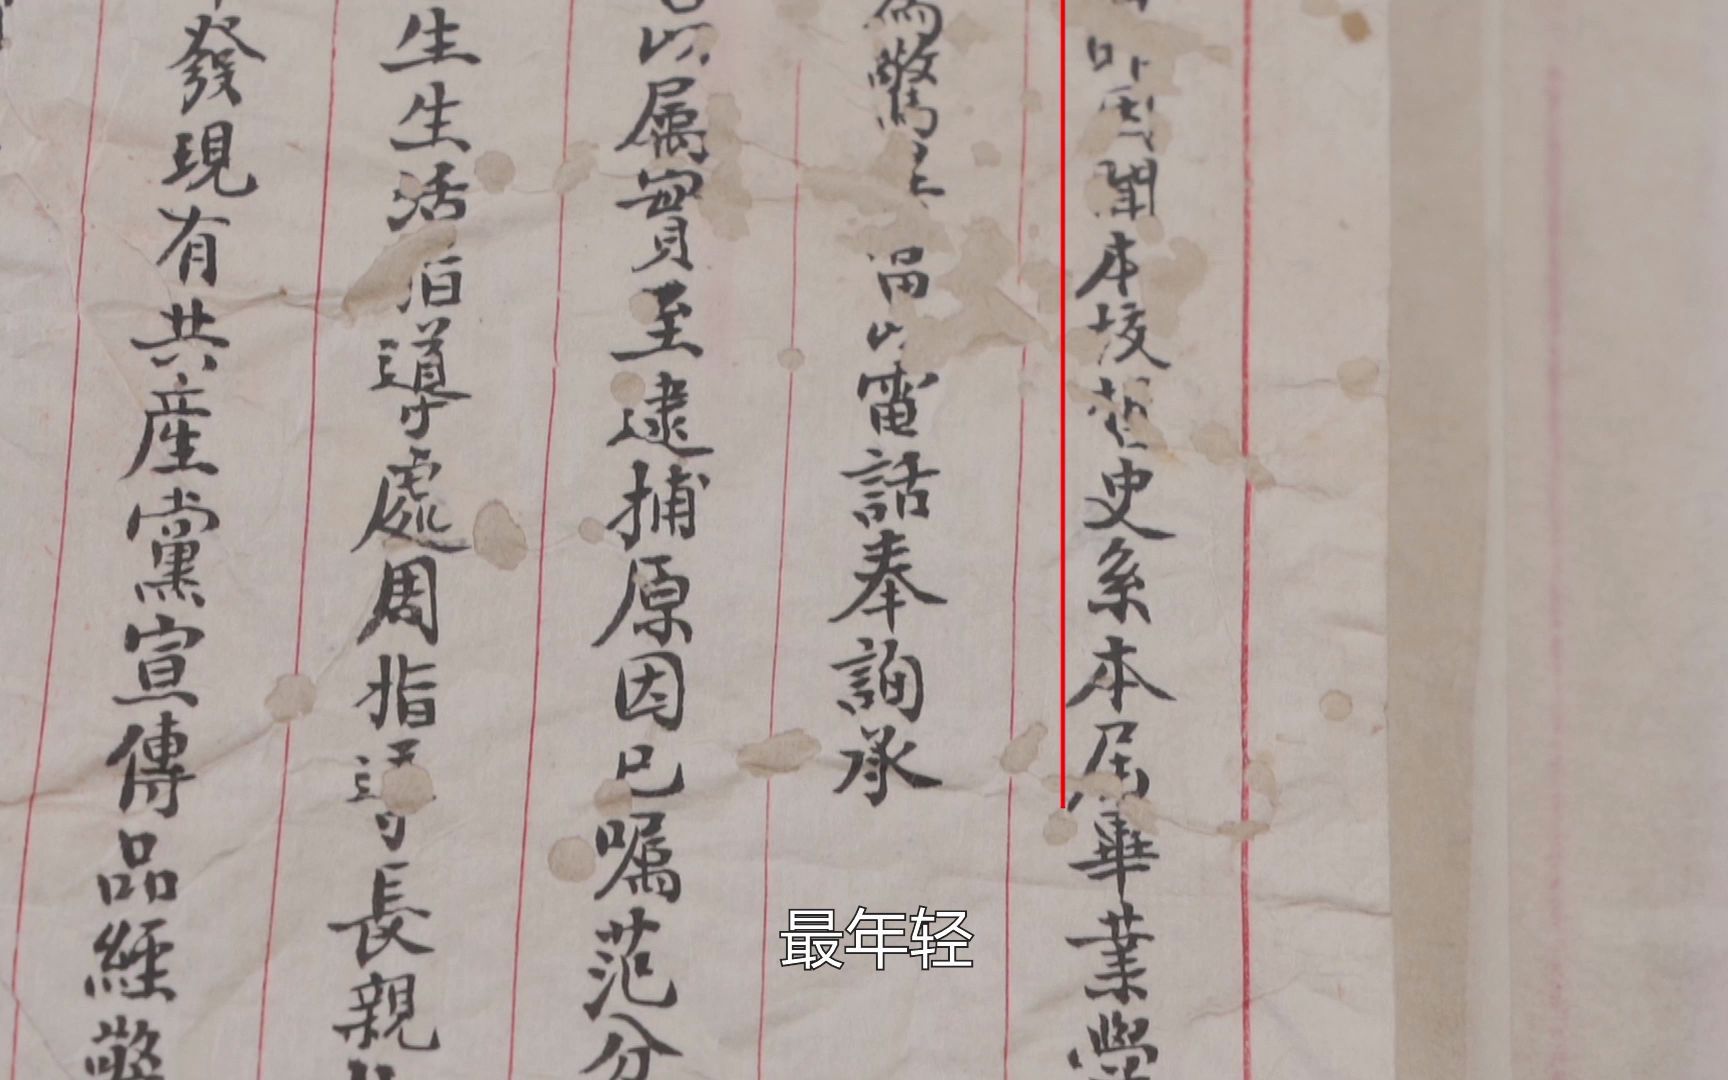 開本校哲史系本屆畢業學
為警 以電話奉詢承
以屬實至逮捕原因已嘱范分
生生活指導處周指導長親
發現有共産黨宣傳品經警
最年轻